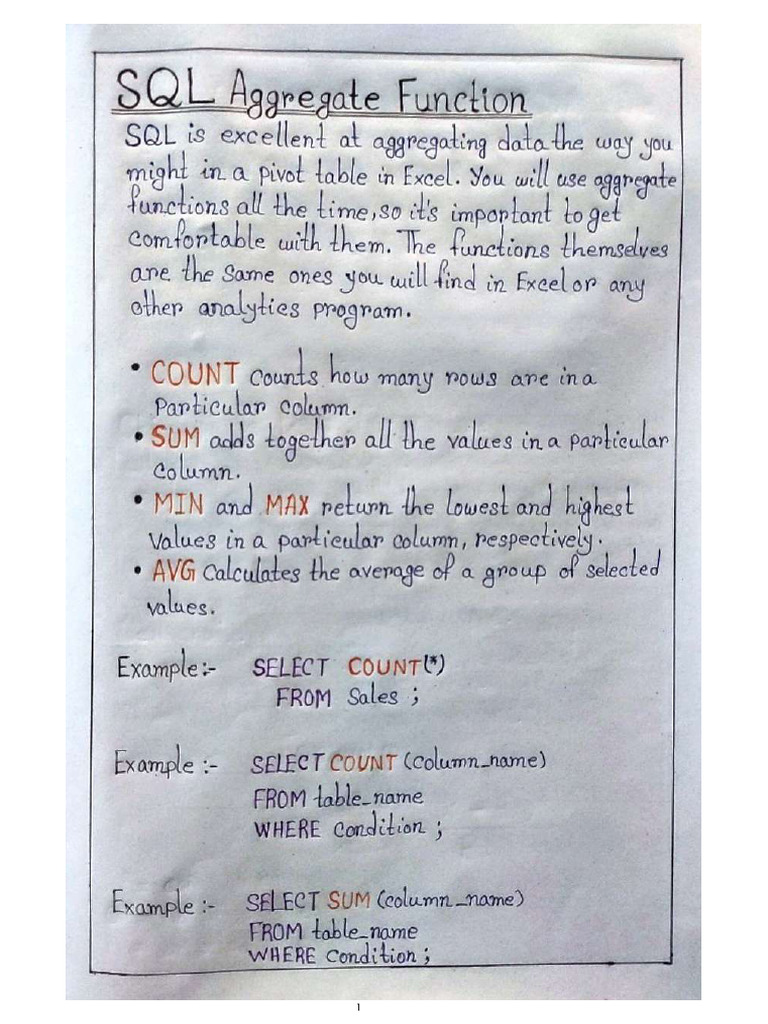 SQL Aggregate Function
SQL is excellent at aggregating data the way you
might in a pivot table in Excel. You will use aggregate
functions all the time, so it's important to get
comfortable with them. The functions themselves
are the same ones you will find in Excel or any
other analytics program.
• COUNT counts how many rows are in a
Particular column.
• SUM adds together all the values in a particular
column.
• MIN and MAX return the lowest and highest
values in a particular column, respectively.
• AVG calculates the average of a group of selected
values.
Example:- SELECT COUNT(*)
FROM Sales ;
Example :- SELECT COUNT (column_name)
FROM table_name
WHERE condition ;
Example :- SELECT SUM (column_name)
FROM table_name
WHERE condition ;
1